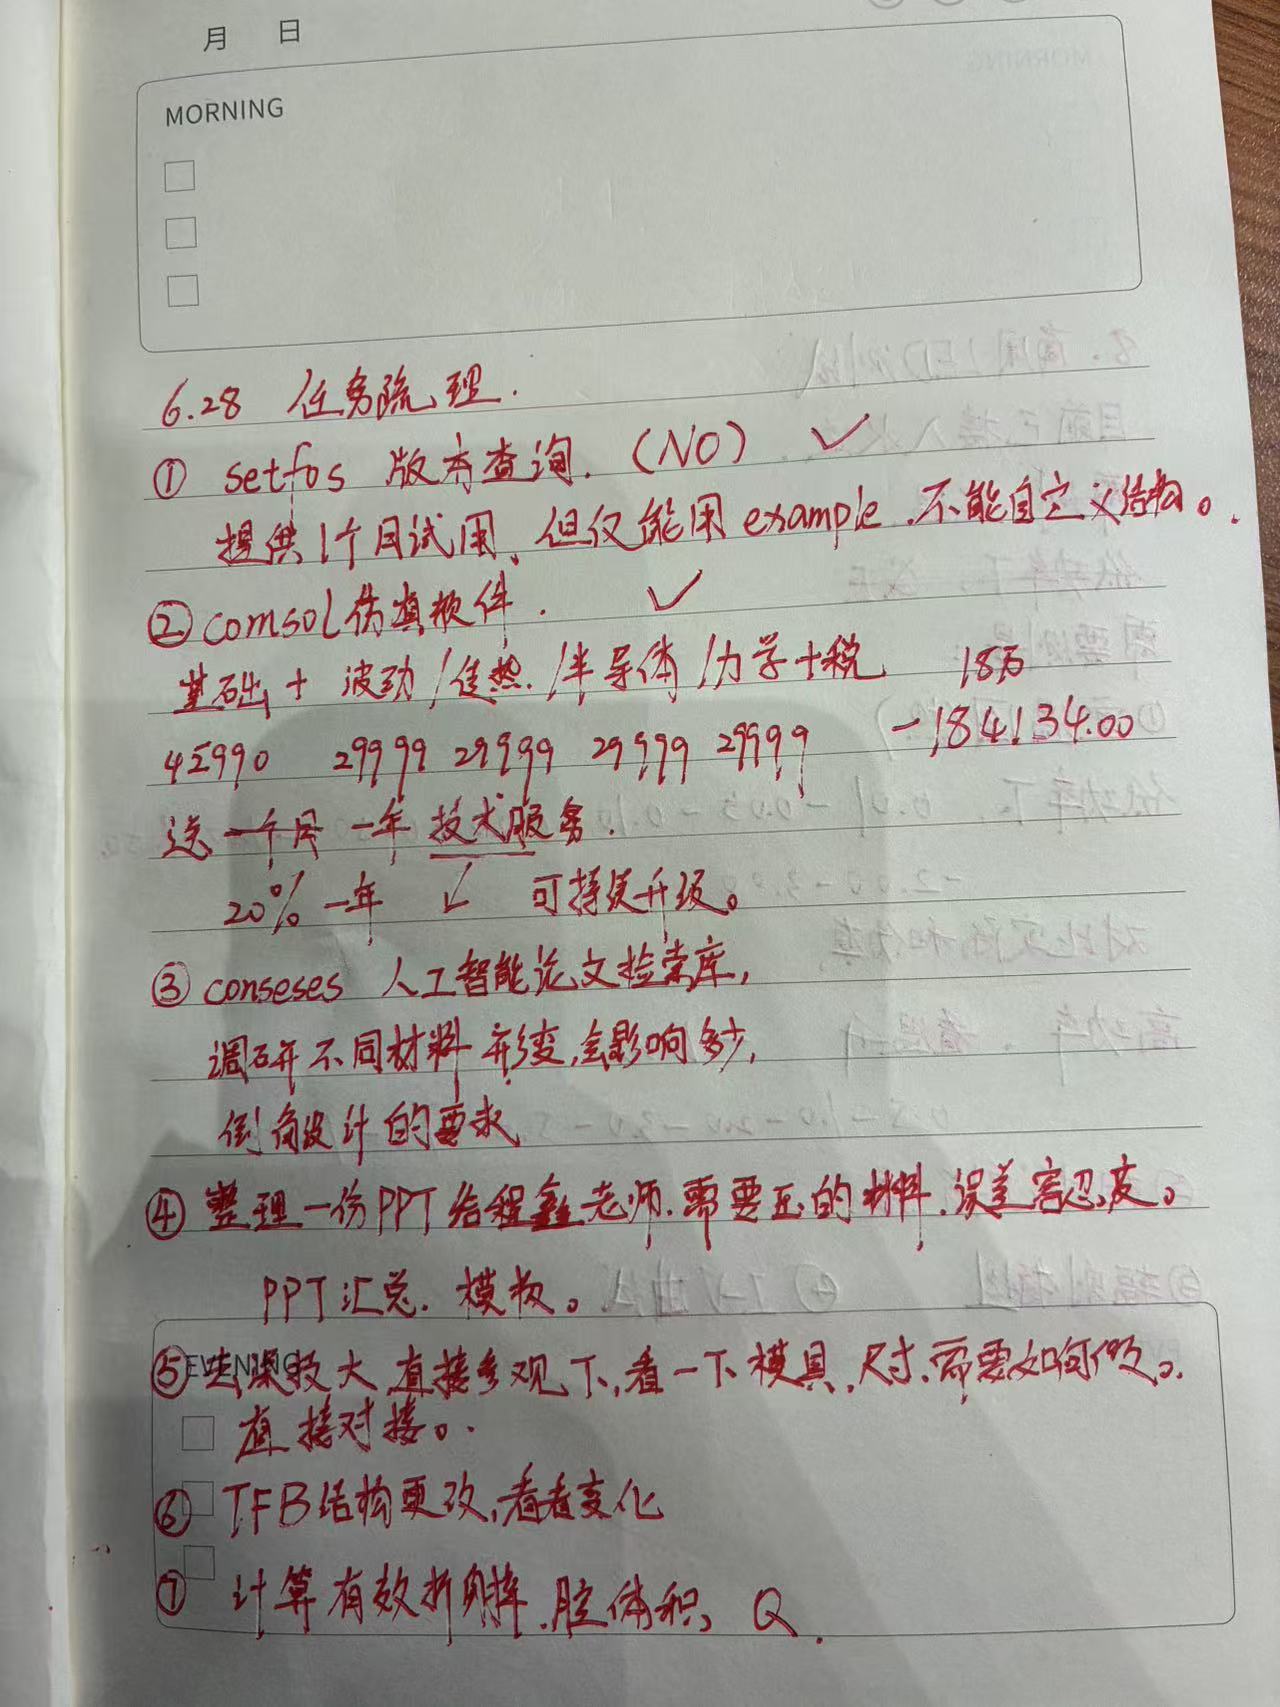 月 日
MORNING
6.28 任务梳理.
① setfos 版本查询. (NO) ✓
提供1个月试用, 但仅能用 example. 不能自定义结构。
② comsol仿真软件. ✓
基础 + 波动/传热/半导体/力学+税 18万
45990 29999 29999 29999 29999 -184134.00
送 一个月 一年 技术服务.
20% 一年 ↙ 可持续升级。
③ conseses 人工智能论文检索库,
调研不同材料形变,会影响多少,
倒角设计的要求
④ 整理一份PPT给程鑫老师.需要的材料.误差容忍度。
PPT汇总. 模板。
EVENING
⑤ 大 直接参观下,看一下模具,尺寸,需要如何做。
直接对接。
⑥ TFB结构更改,看看变化
⑦ 计算有效折射率.腔体积, Q.